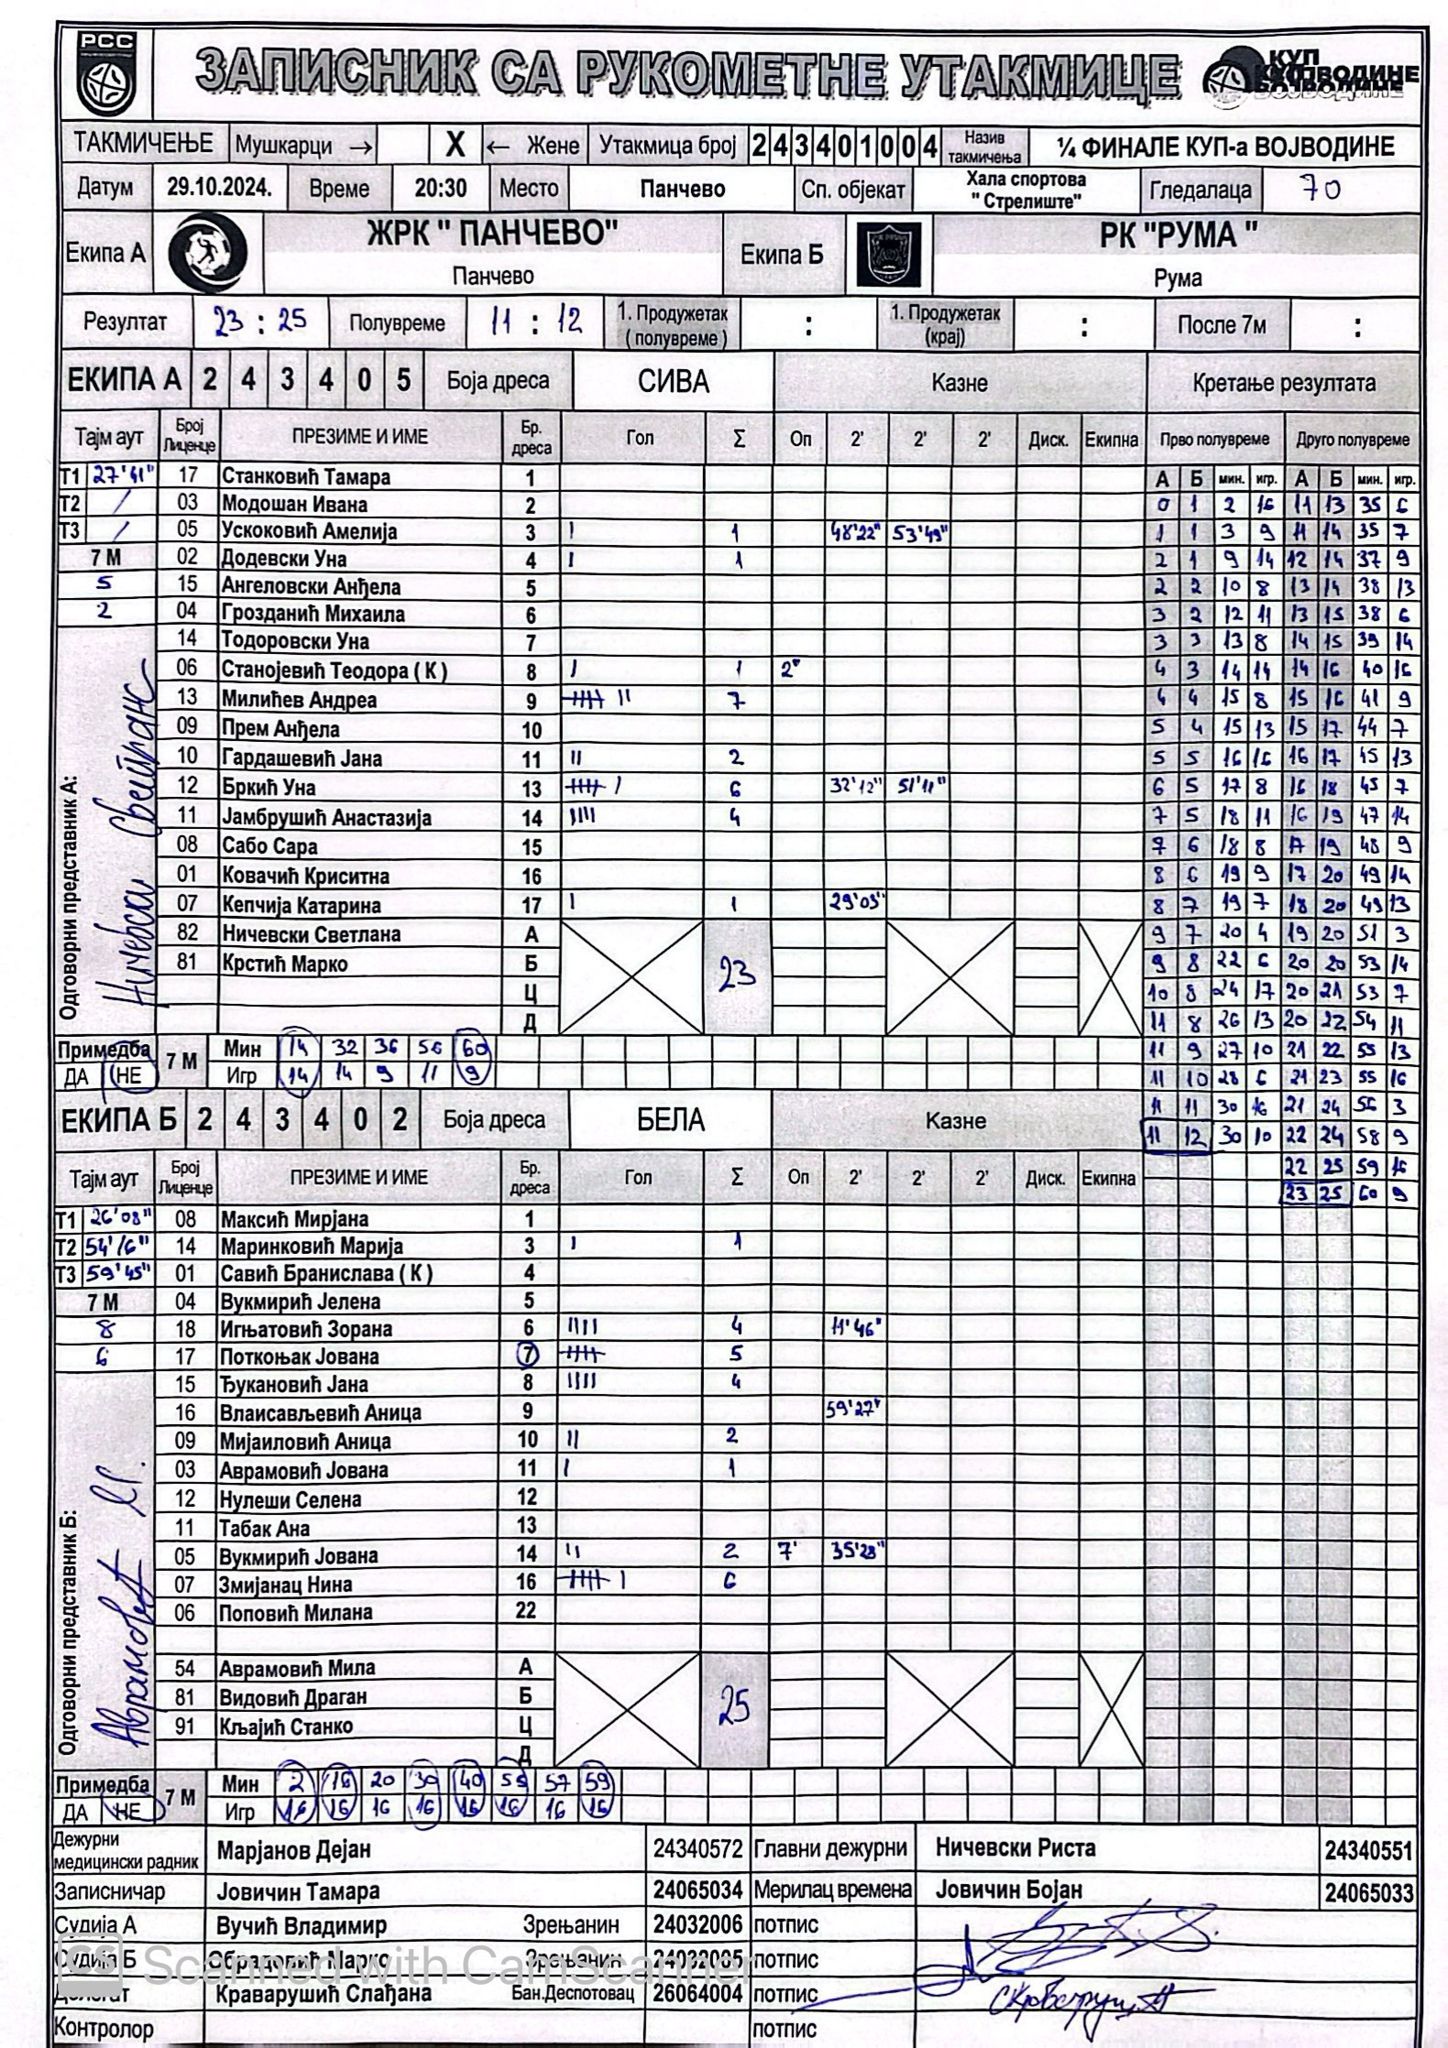 РСС
ЗАПИСНИК СА РУКОМЕТНЕ УТАКМИЦЕ
КУП ВОЈВОДИНЕ
ТАКМИЧЕЊЕ Мушкарци → X ← Жене Утакмица број 2 4 3 4 0 1 0 0 4 Назив такмичења ¼ ФИНАЛЕ КУП-а ВОЈВОДИНЕ
Датум 29.10.2024. Време 20:30 Место Панчево Сп. објекат Хала спортова "Стрелиште" Гледалаца 70
Екипа А ЖРК " ПАНЧЕВО" Панчево Екипа Б РК "РУМА " Рума
Резултат 23 : 25 Полувреме 11 : 12 1. Продужетак ( полувреме ) : 1. Продужетак (крај) : После 7м :
ЕКИПА А 2 4 3 4 0 5 Боја дреса СИВА Казне Кретање резултата
Тајм аут Број Лиценце ПРЕЗИМЕ И ИМЕ Бр. дреса Гол Σ Оп 2' 2' 2' Диск. Екипна Прво полувреме Друго полувреме
Т1 27'41" 17 Станковић Тамара 1 А Б мин. игр. А Б мин. игр.
Т2 / 03 Модошан Ивана 2 0 1 2 16 11 13 35 6
Т3 / 05 Ускоковић Амелија 3 I 1 48'22" 53'49" 1 1 3 9 11 14 35 7
7 М 02 Додевски Уна 4 I 1 2 1 9 14 12 14 37 9
5 15 Ангеловски Анђела 5 2 2 10 8 13 14 38 13
2 04 Грозданић Михаила 6 3 2 12 11 13 15 38 6
14 Тодоровски Уна 7 3 3 13 8 14 15 39 14
06 Станојевић Теодора ( К ) 8 I 1 2" 4 3 14 14 14 16 40 16
13 Милићев Андреа 9 IIIII II 7 4 4 15 8 15 16 41 9
09 Прем Анђела 10 5 4 15 13 15 17 44 7
10 Гардашевић Јана 11 II 2 5 5 16 16 16 17 45 13
12 Бркић Уна 13 IIIII I 6 32'12" 51'11" 6 5 17 8 16 18 45 7
11 Јамбрушић Анастазија 14 IIII 4 7 5 18 11 16 19 47 14
08 Сабо Сара 15 7 6 18 8 17 19 48 9
01 Ковачић Криситна 16 8 6 19 9 17 20 49 14
07 Кепчија Катарина 17 I 1 29'05" 8 7 19 7 18 20 49 13
82 Ничевски Светлана А 9 7 20 4 19 20 51 3
81 Крстић Марко Б 23 9 8 22 6 20 20 53 14
Ц 10 8 24 17 20 21 53 7
Д 11 8 26 13 20 22 54 11
Одговорни представник А: Ничевски Светлана
Примедба 7 М Мин 14 32 36 56 60 11 9 27 10 21 22 55 13
ДА НЕ Игр 14 14 9 11 9 11 10 28 6 21 23 55 16
ЕКИПА Б 2 4 3 4 0 2 Боја дреса БЕЛА Казне 11 11 30 16 21 24 56 3
11 12 30 10 22 24 58 9
Тајм аут Број Лиценце ПРЕЗИМЕ И ИМЕ Бр. дреса Гол Σ Оп 2' 2' 2' Диск. Екипна 22 25 59 16
23 25 60 9
Т1 26'08" 08 Максић Мирјана 1
Т2 54'16" 14 Маринковић Марија 3 I 1
Т3 59'45" 01 Савић Бранислава ( К ) 4
7 М 04 Вукмирић Јелена 5
8 18 Игњатовић Зорана 6 IIII 4 11'46"
6 17 Поткоњак Јована 7 IIIII 5
15 Ђукановић Јана 8 IIII 4
16 Влаисављевић Аница 9 59'27"
09 Мијаиловић Аница 10 II 2
03 Аврамовић Јована 11 I 1
12 Нулеши Селена 12
11 Табак Ана 13
05 Вукмирић Јована 14 II 2 7' 35'28"
07 Змијанац Нина 16 IIIII I 6
06 Поповић Милана 22
54 Аврамовић Мила А
81 Видовић Драган Б 25
91 Кљајић Станко Ц
Д
Одговорни представник Б: Аврамовић М.
Примедба 7 М Мин 2 16 20 30 40 55 57 59
ДА НЕ Игр 16 16 16 16 16 16 16 16
Дежурни медицински радник Марјанов Дејан 24340572 Главни дежурни Ничевски Риста 24340551
Записничар Јовичин Тамара 24065034 Мерилац времена Јовичин Бојан 24065033
Судија А Вучић Владимир Зрењанин 24032006 потпис
Судија Б Обрадовић Марко Зрењанин 24032005 потпис
Делегат Краварушић Слађана Бан.Деспотовац 26064004 потпис
Контролор потпис
CS Scanned with CamScanner